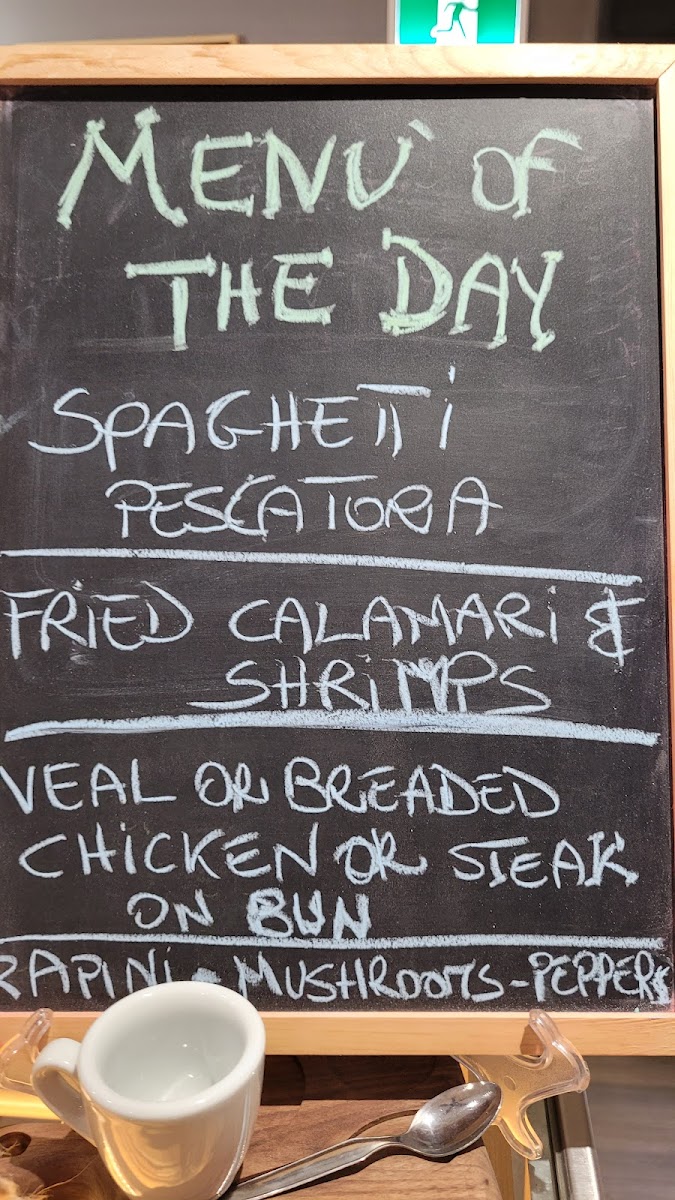 MENÙ OF
THE DAY
SPAGHETTI
PESCATORA
FRIED CALAMARI &
SHRIMPS
VEAL OR BREADED
CHICKEN OR STEAK
ON BUN
RAPINI - MUSHROOMS - PEPPERS